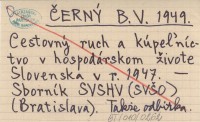 ČERNÝ B.V. 1949.
Cestovný ruch a kúpeľníc-
tvo v hospodárskom živote
Slovenska v r. 1947. —
Sborník SVSHV (SVŠO)
(Bratislava). Takže odbitka.